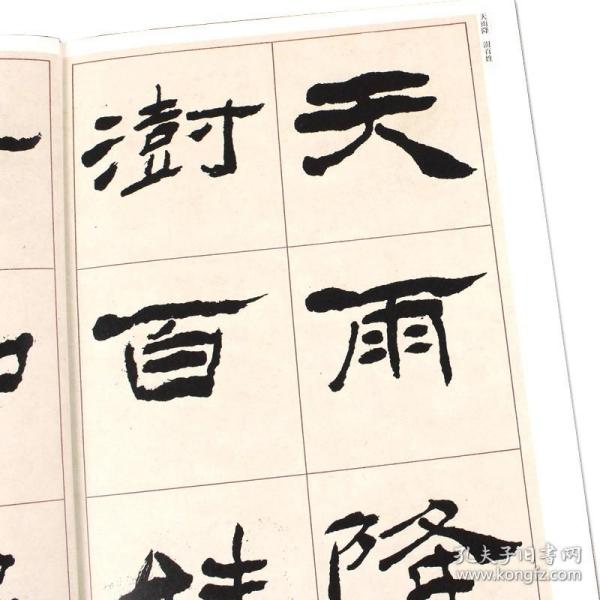 天雨降
澍百姓
天雨降 澍百姓
孔夫子旧书网
www.kongfz.com